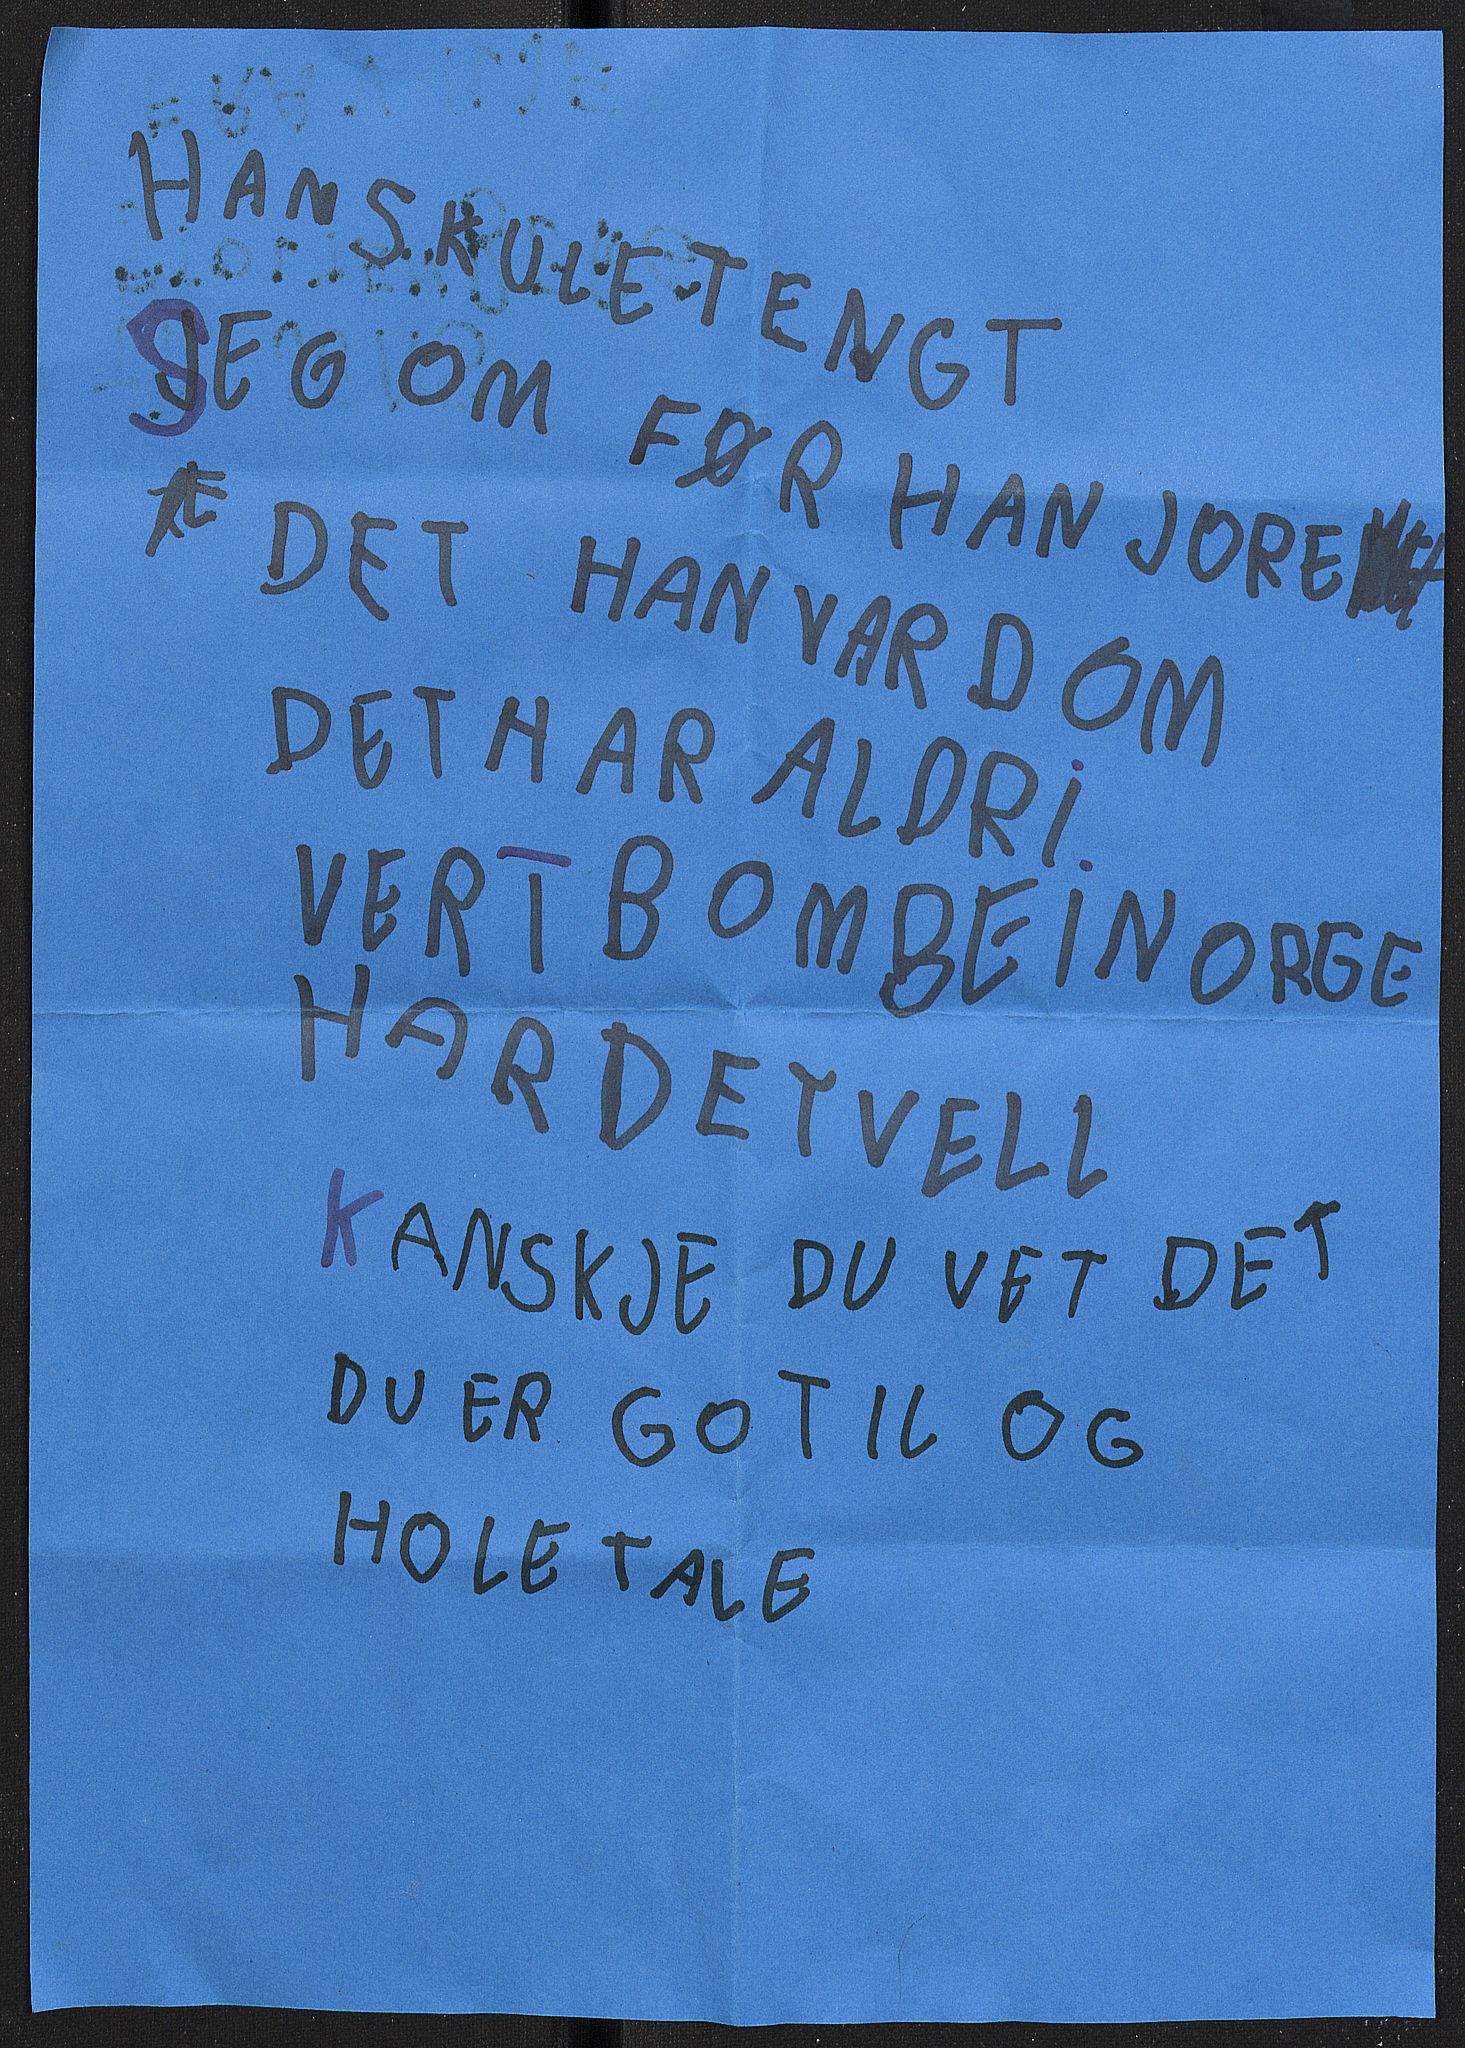 HAN SKULE TENGT
SEG OM FØR HAN JORE
DET HAN VAR DOM
DET HAR ALDRI
VERT BOMBE I NORGE
HAR DET VELL
KANSKJE DU VET DET
DU ER GO TIL OG
HOLE TALE